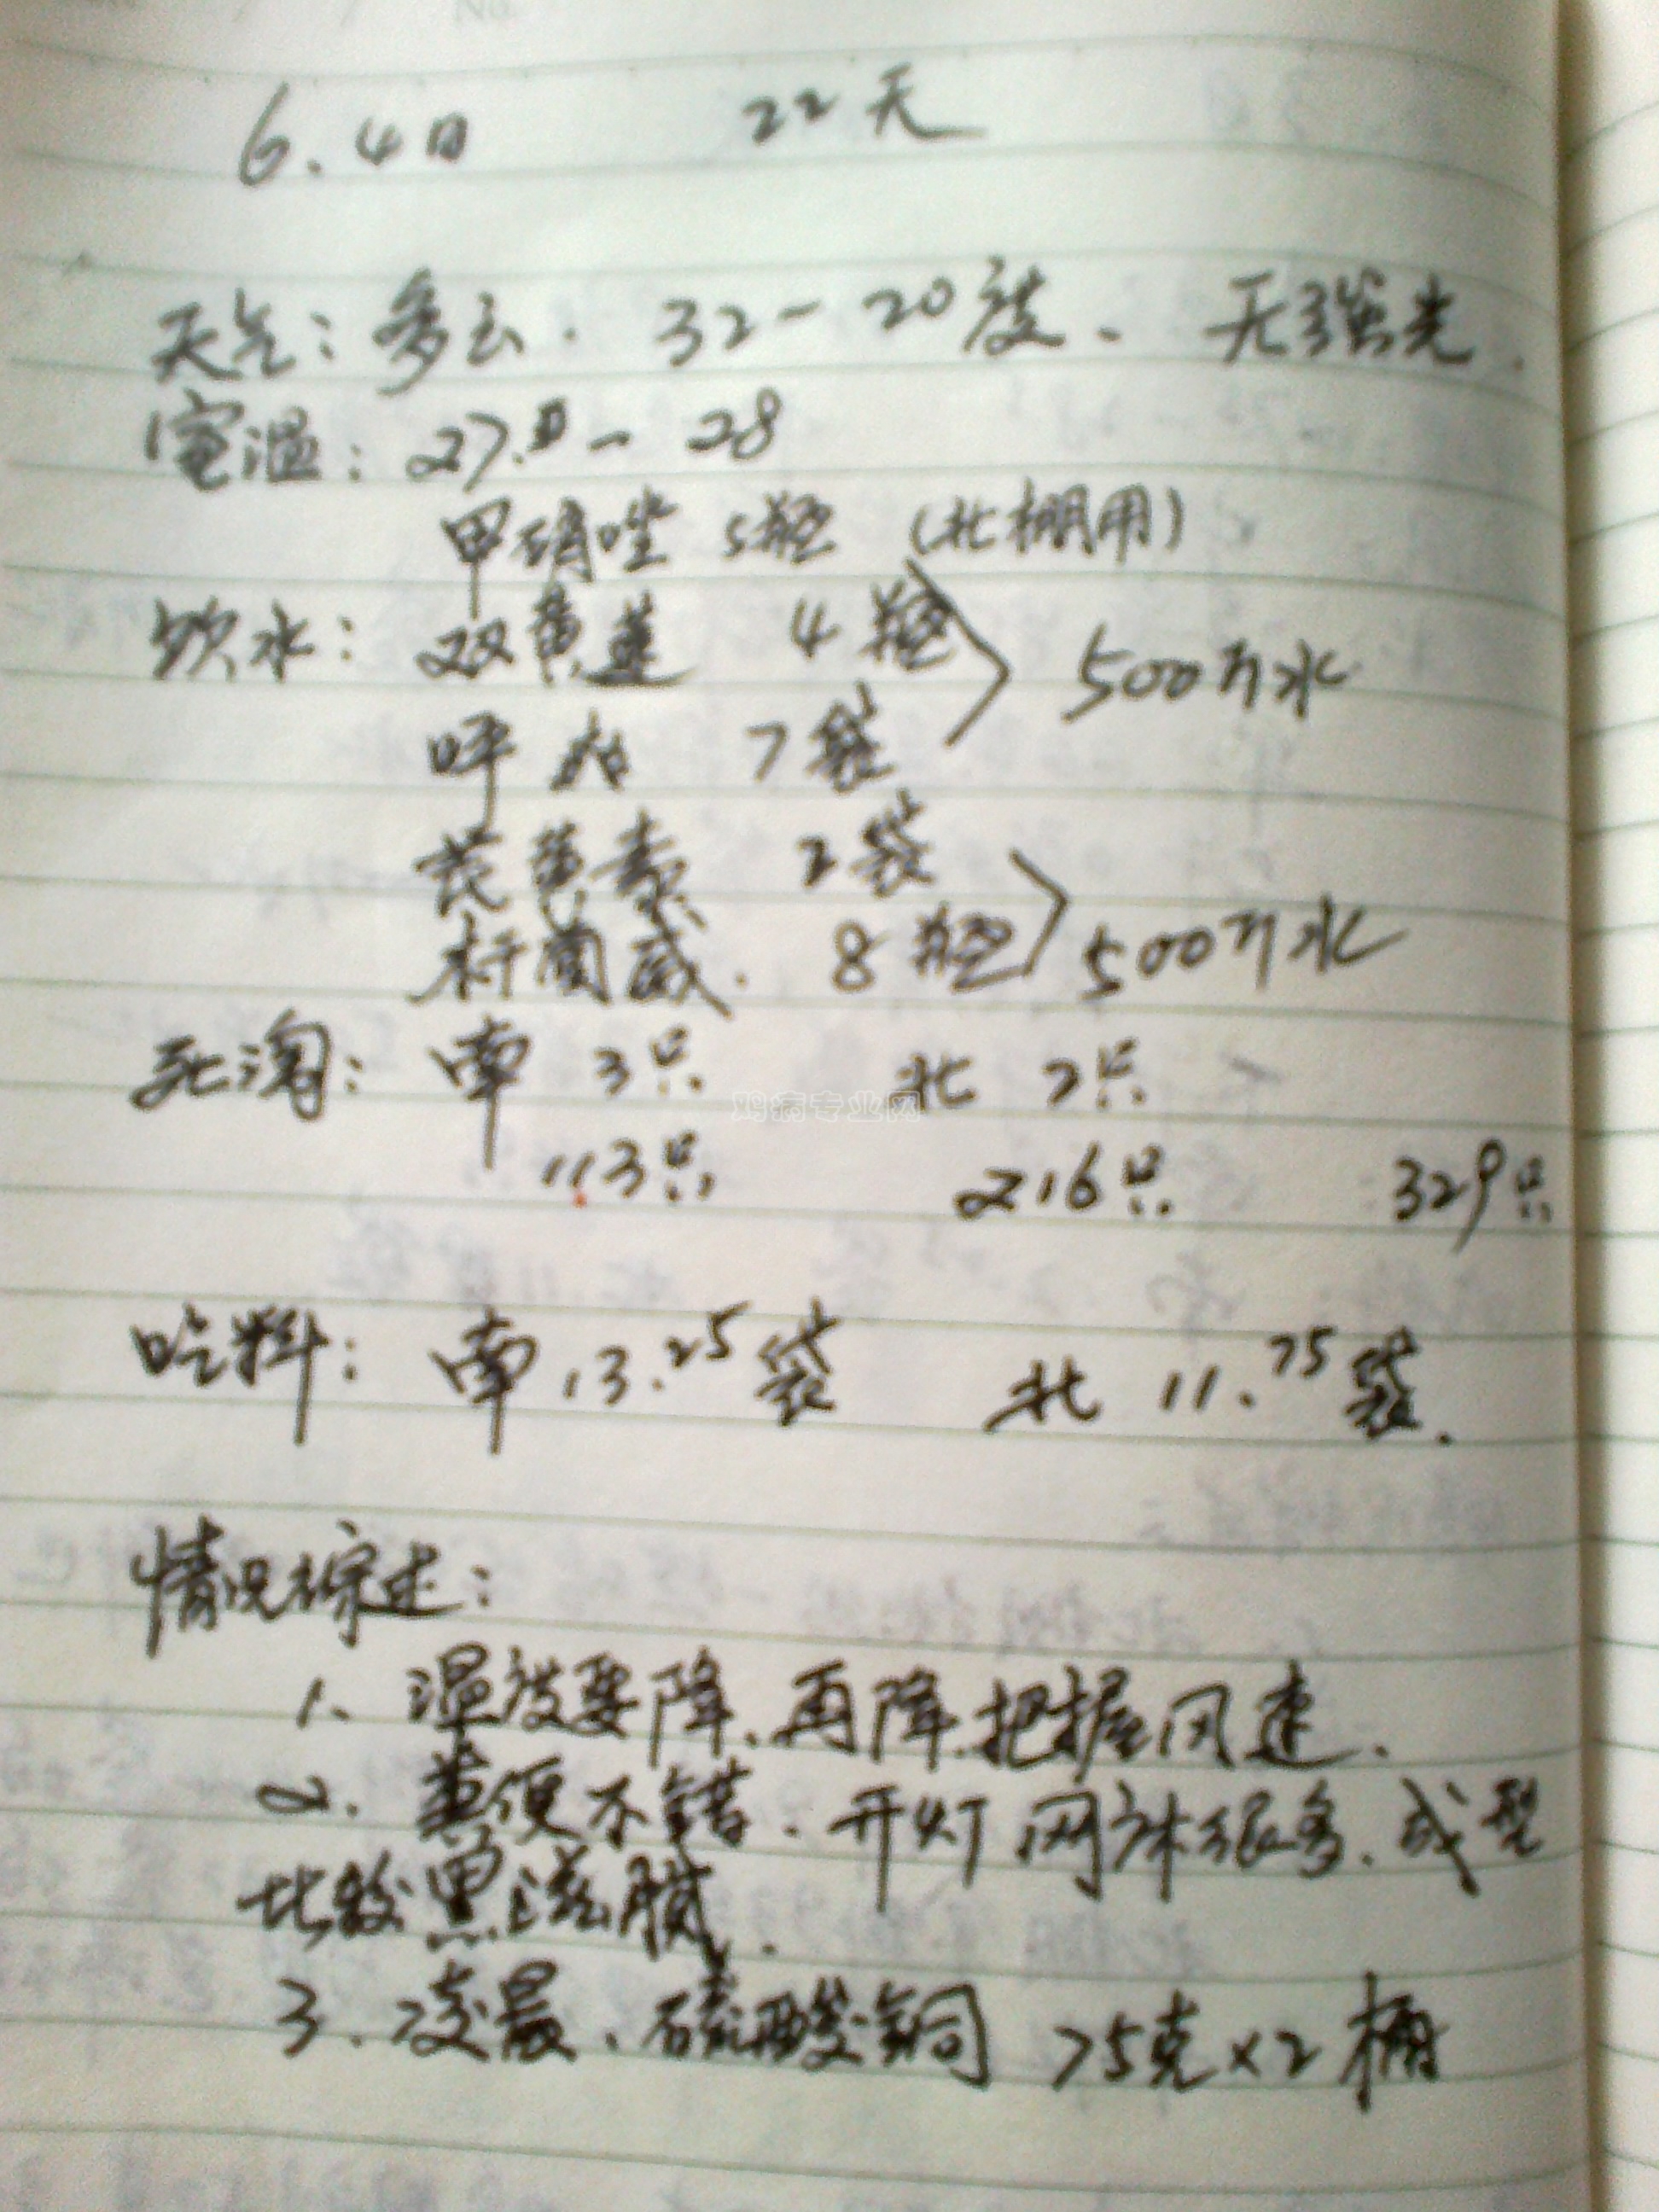 No.
6.4日 22天
天气：多云. 32-20度、无强光.
室温：27. - 28
甲硝唑 5瓶 (北棚用)
饮水：双黄莲 4瓶 500斤水
呼 7袋
芪黄素 2袋
杆菌威. 8瓶 500斤水
死淘：南 3只 北 2只
鸡病专业网
113只 216只 329只
吃料：南 13.25袋 北 11.75袋.
情况综述：
1、温度要降、再降.把握风速.
2. 粪便不错、开灯网床很多.成型
比较黑滋腻.
3、凌晨、硫酸铜 75克×2棚